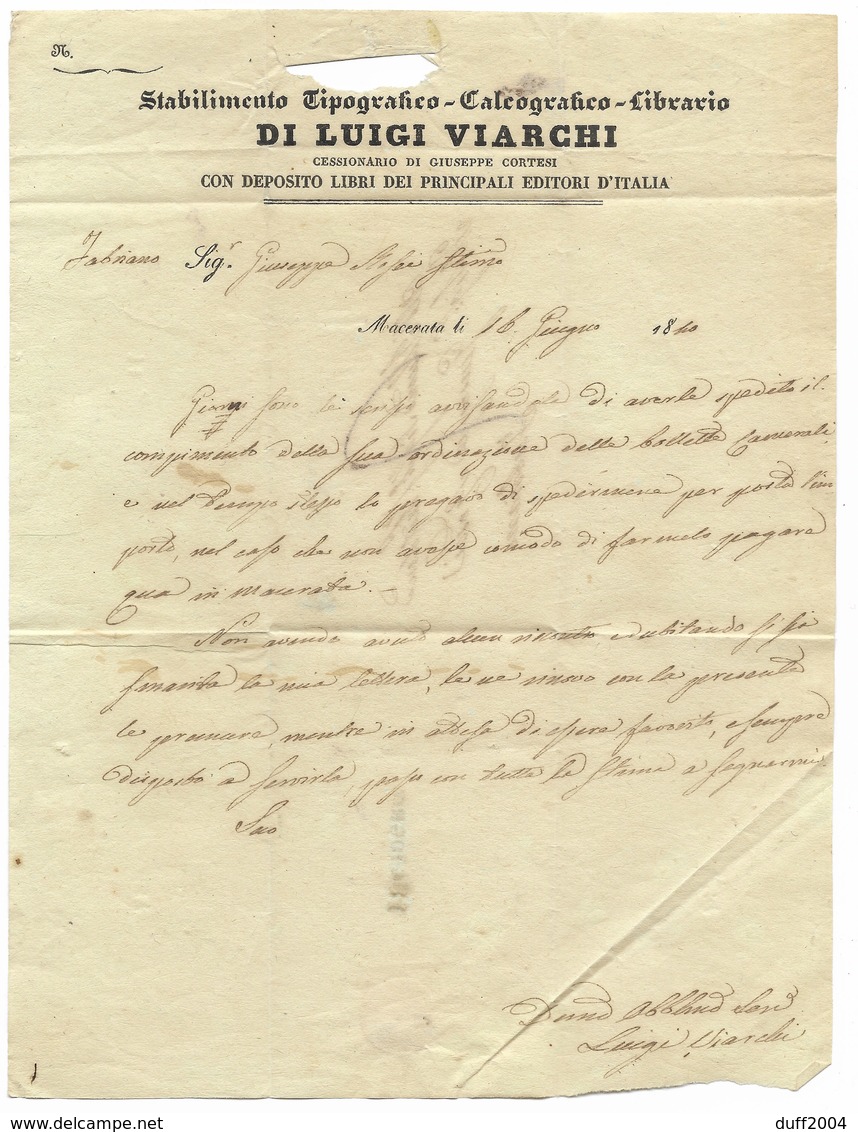 N.
Stabilimento Tipografico-Calcografico-Librario
DI LUIGI VIARCHI
CESSIONARIO DI GIUSEPPE CORTESI
CON DEPOSITO LIBRI DEI PRINCIPALI EDITORI D'ITALIA
Fabriano Sig.r Giuseppe Stimo
Macerata li 16 Giugno 1840
Giorni sono le scrissi avvisandola di averle spedito il
compimento della sua ordinazione delle bollette Camerali,
e nel tempo stesso la pregavo di spedirmene per posta l'im
porto, nel caso che non avesse comodo di farmelo pagare
qua in Macerata. —
Non avendo avuto alcun riscontro, e dubitando si sia
smarrita la mia lettera, le ne rinovo con la presente
le premure, mentre in attesa di essere favorito, e sempre
disposto a servirla, passo con tutta la stima a segnarmi
Suo
Obblmo Serv
Luigi Viarchi
delcampe.net
duff2004